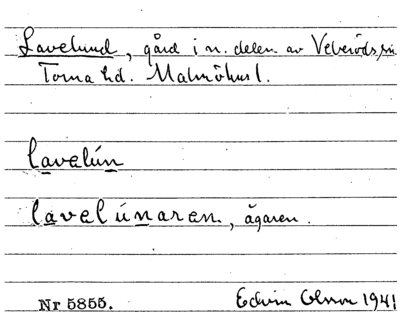 Lavelund, gård i n. delen av Veberöds sn
Torna hd. Malmöhus l.
lavelún
lavelúnaren, ägaren.
Nr 5855. Edvin Olsson 1941